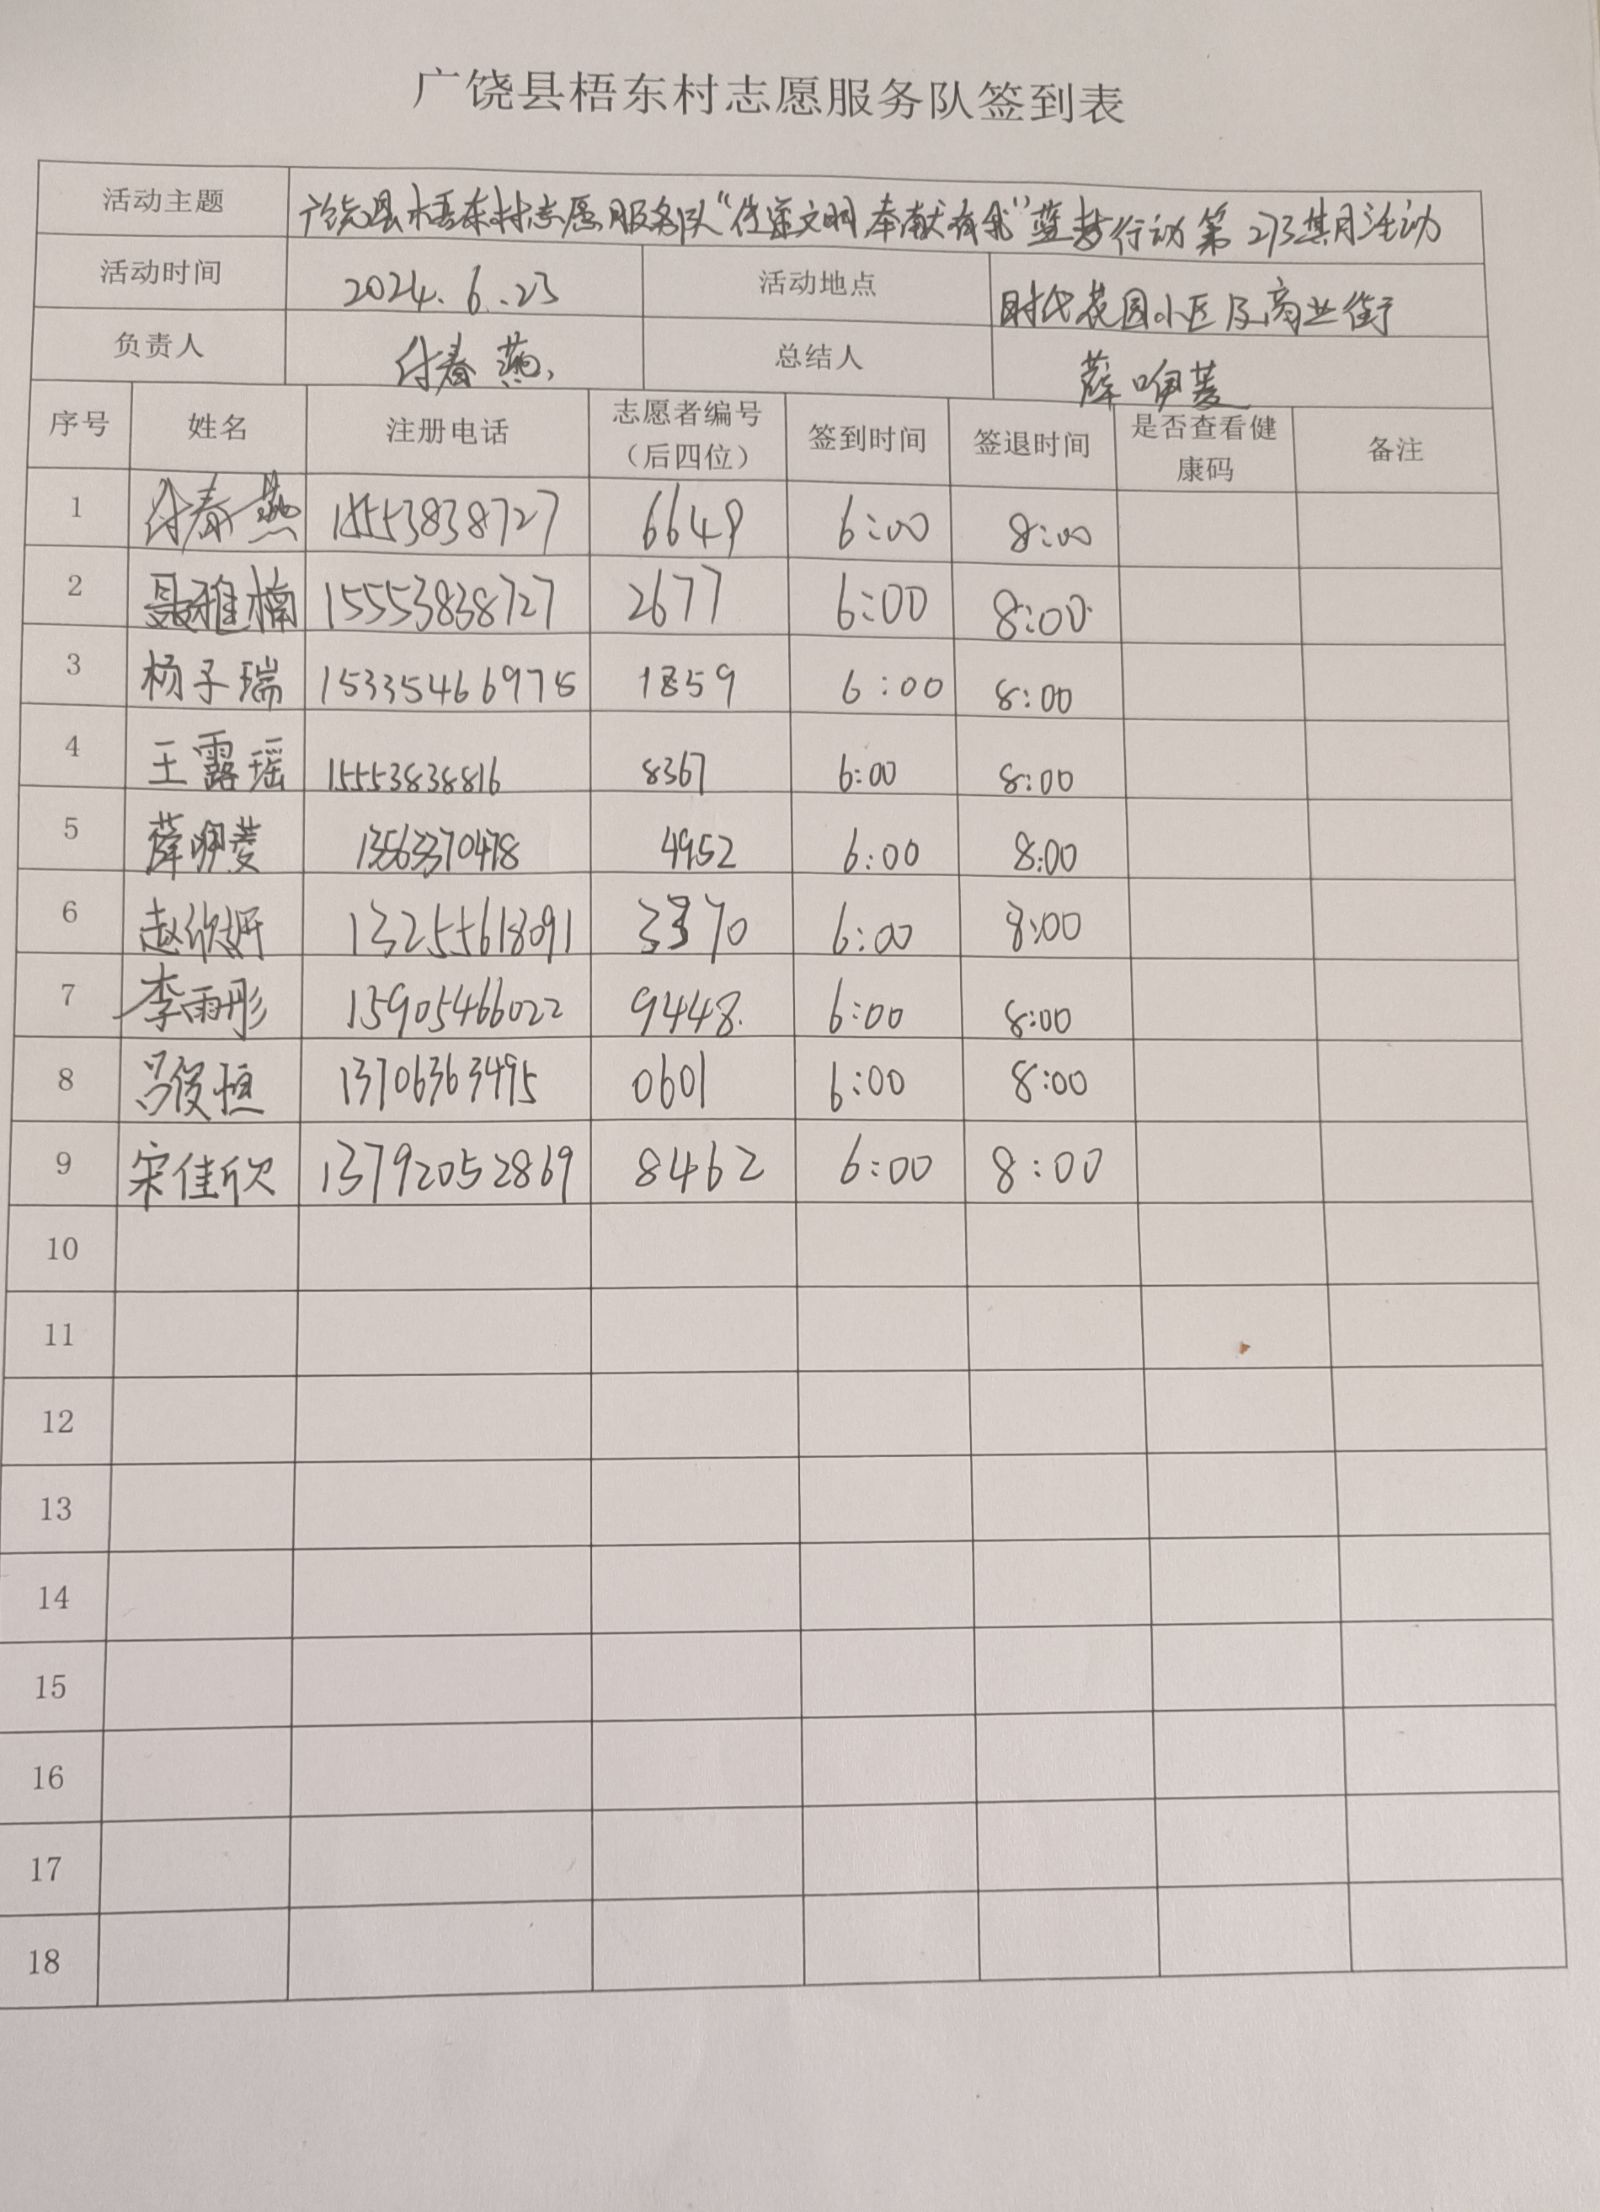 广饶县梧东村志愿服务队签到表
活动主题 广饶县梧东村志愿服务队“传递文明 奉献有我”蓝梦行动第273期活动
活动时间 2024.6.23 活动地点 时代花园小区及商业街
负责人 付春燕 总结人 薛咿菱
序号 姓名 注册电话 志愿者编号（后四位） 签到时间 签退时间 是否查看健康码 备注
1 付春燕 15553838727 6649 6:00 8:00
2 聂雅楠 15553838727 2677 6:00 8:00
3 杨子瑞 15335466975 1859 6:00 8:00
4 王露瑶 15553838816 8367 6:00 8:00
5 薛咿菱 13563370478 4952 6:00 8:00
6 赵欣妍 13255618091 3370 6:00 8:00
7 李雨彤 15905466022 9448 6:00 8:00
8 吕俊恒 13706363495 0601 6:00 8:00
9 宋佳欣 13792052869 8462 6:00 8:00
10
11
12
13
14
15
16
17
18